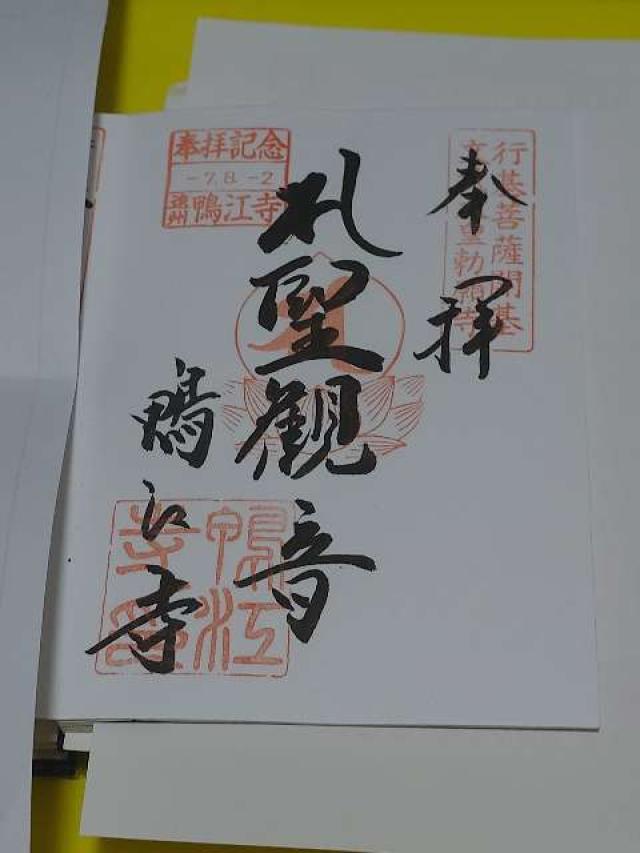 行基菩薩開基
聖勅願寺
奉拝
聖観音
鴨江寺
奉拝記念
-7.8.-2
遠州 鴨江寺
鴨江
寺印